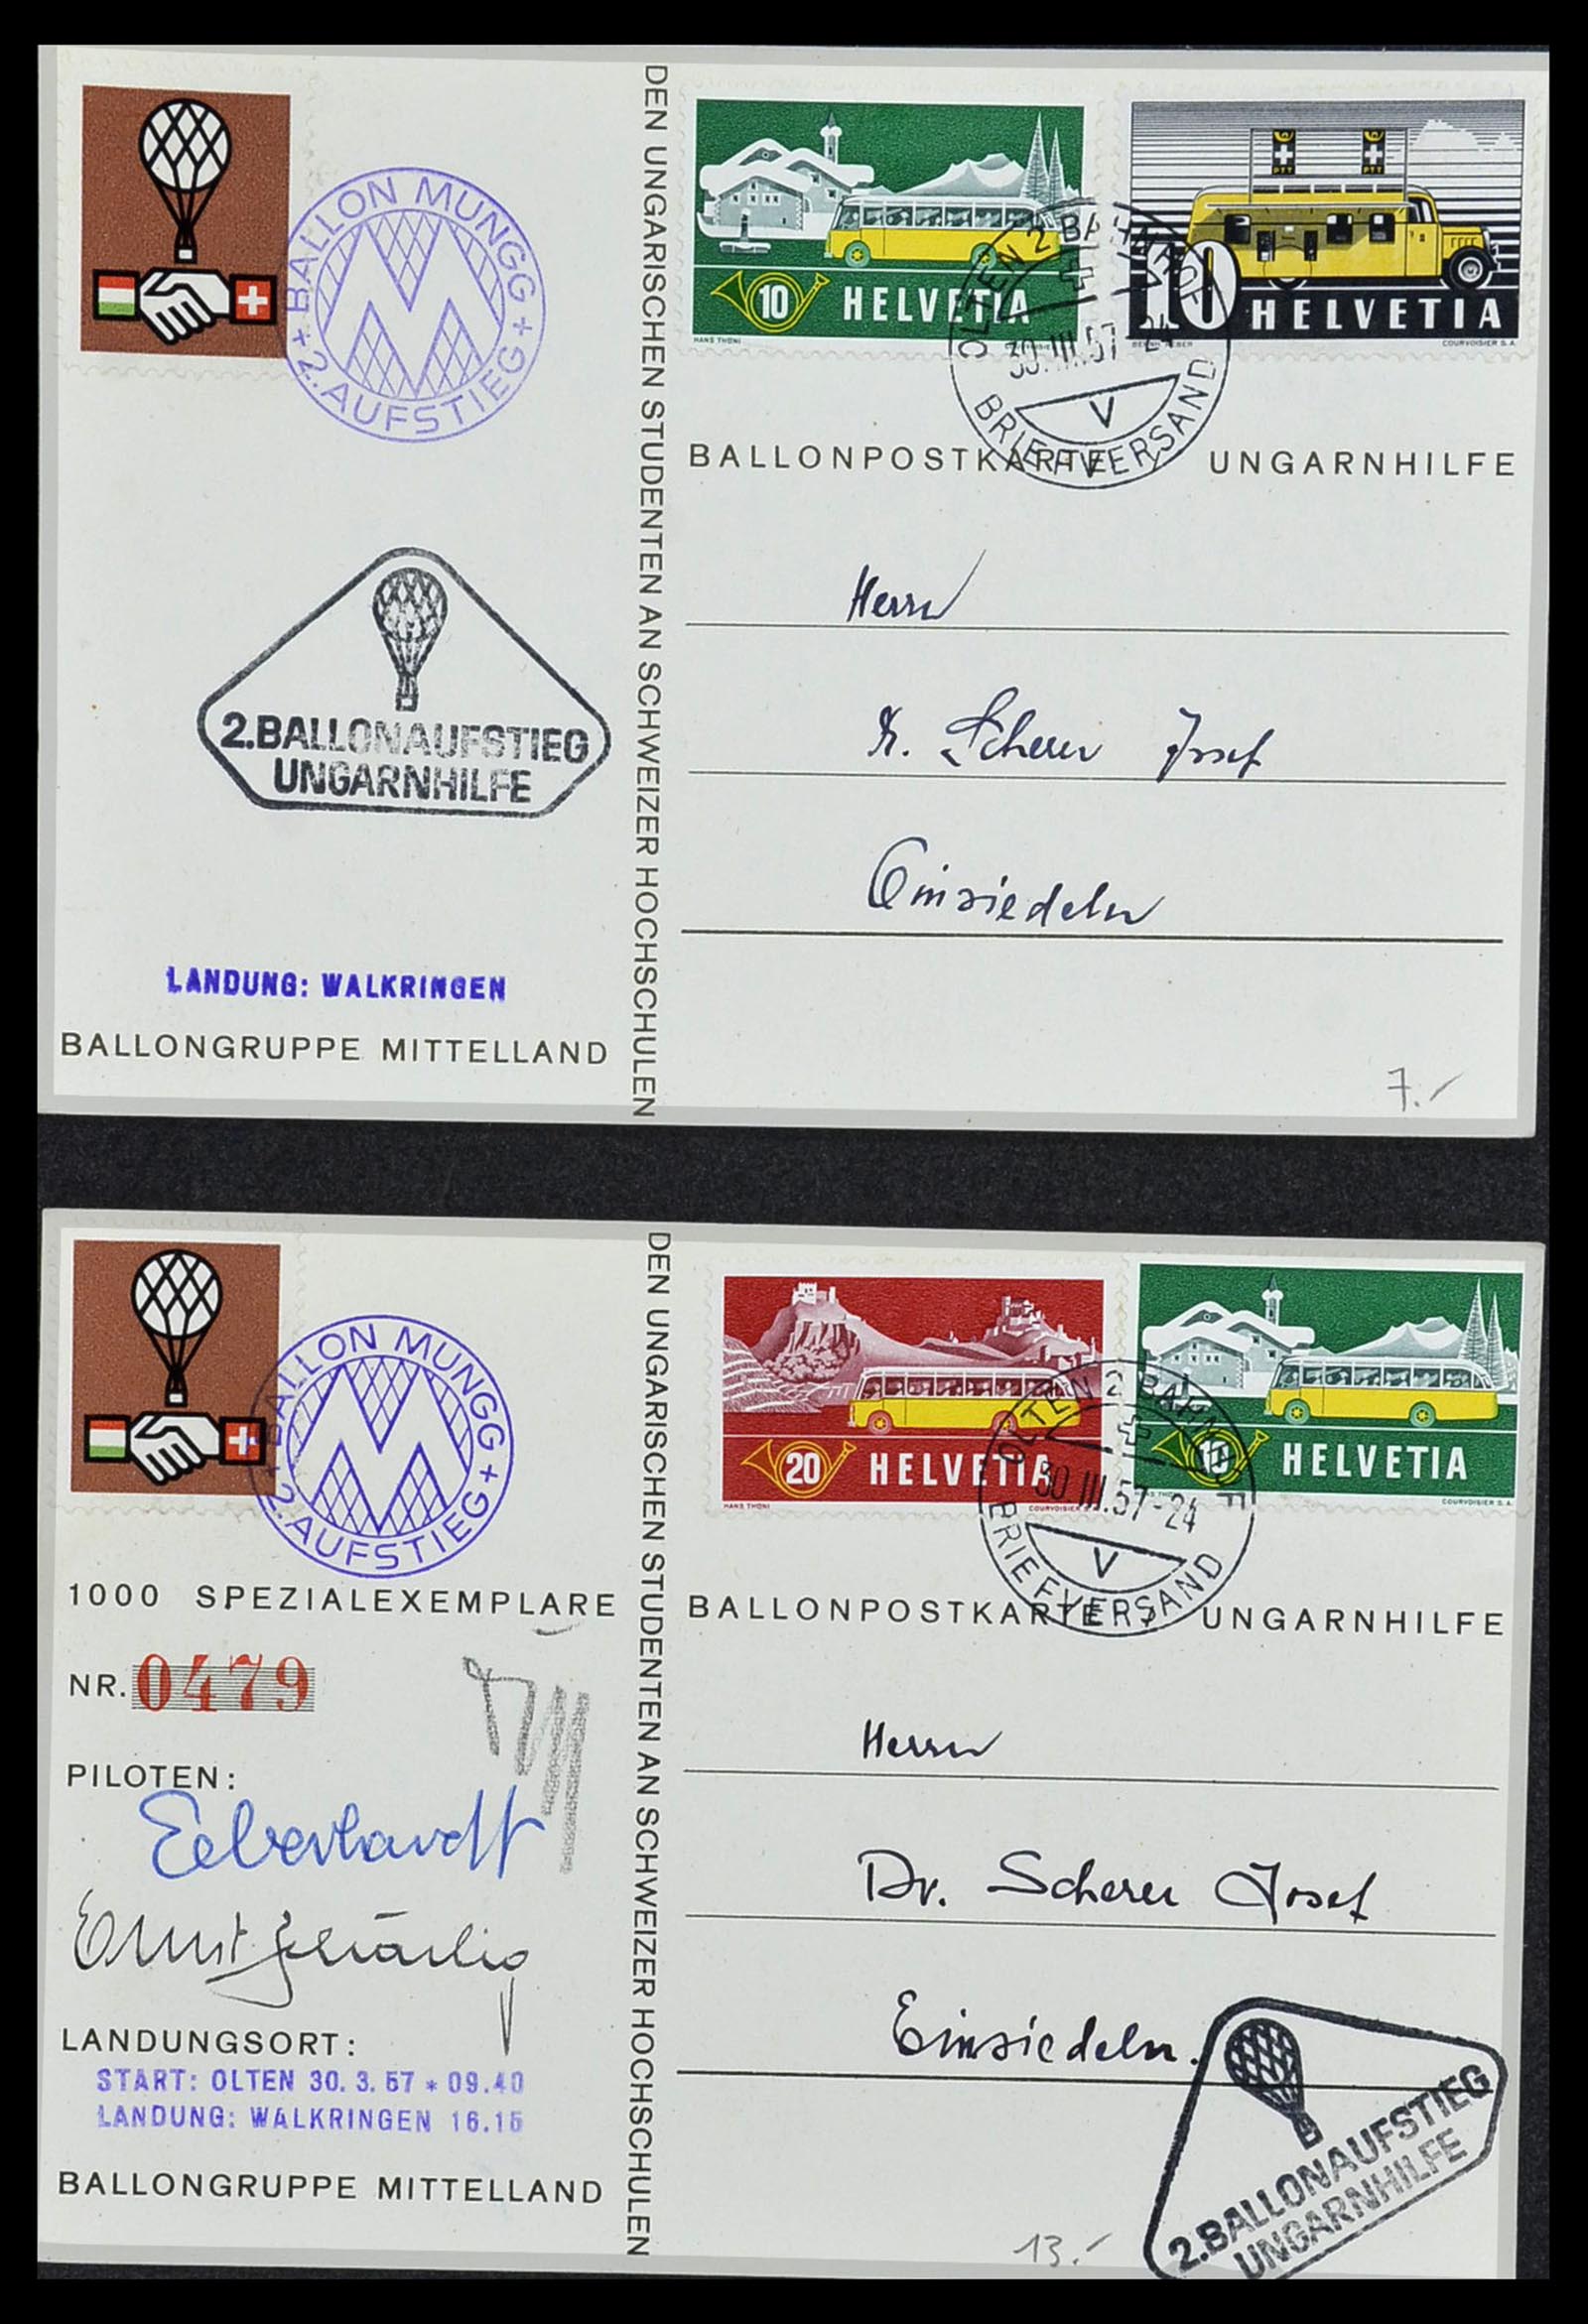 BALLON MUNGG + 2. AUFSTIEG +
M
DEN UNGARISCHEN STUDENTEN AN SCHWEIZER HOCHSCHULEN
10 HELVETIA
HANS THÖNI
PTT PTT
10 HELVETIA
COURVOISIER S.A.
OLTEN 2 BAHNHOF
30.III.57-24
V
BRIEFVERSAND
BALLONPOSTKARTE / UNGARNHILFE
2.BALLONAUFSTIEG
UNGARNHILFE
Herrn
Dr. Scherer Josef
Einsiedeln
LANDUNG: WALKRINGEN
BALLONGRUPPE MITTELLAND
7.-
BALLON MUNGG + 2. AUFSTIEG +
M
DEN UNGARISCHEN STUDENTEN AN SCHWEIZER HOCHSCHULEN
20 HELVETIA
HANS THÖNI COURVOISIER S.A.
10 HELVETIA
HANS THÖNI COURVOISIER S.A.
OLTEN 2 BAHNHOF
30.III.57-24
V
BRIEFVERSAND
1000 SPEZIALEXEMPLARE
BALLONPOSTKARTE / UNGARNHILFE
NR. 0479
PILOTEN:
Eberhardt
Ernst
Herrn
Dr. Scherer Josef
Einsiedeln.
LANDUNGSORT:
START: OLTEN 30. 3. 57 * 09.40
LANDUNG: WALKRINGEN 16.15
BALLONGRUPPE MITTELLAND
2.BALLONAUFSTIEG
UNGARNHILFE
13.-